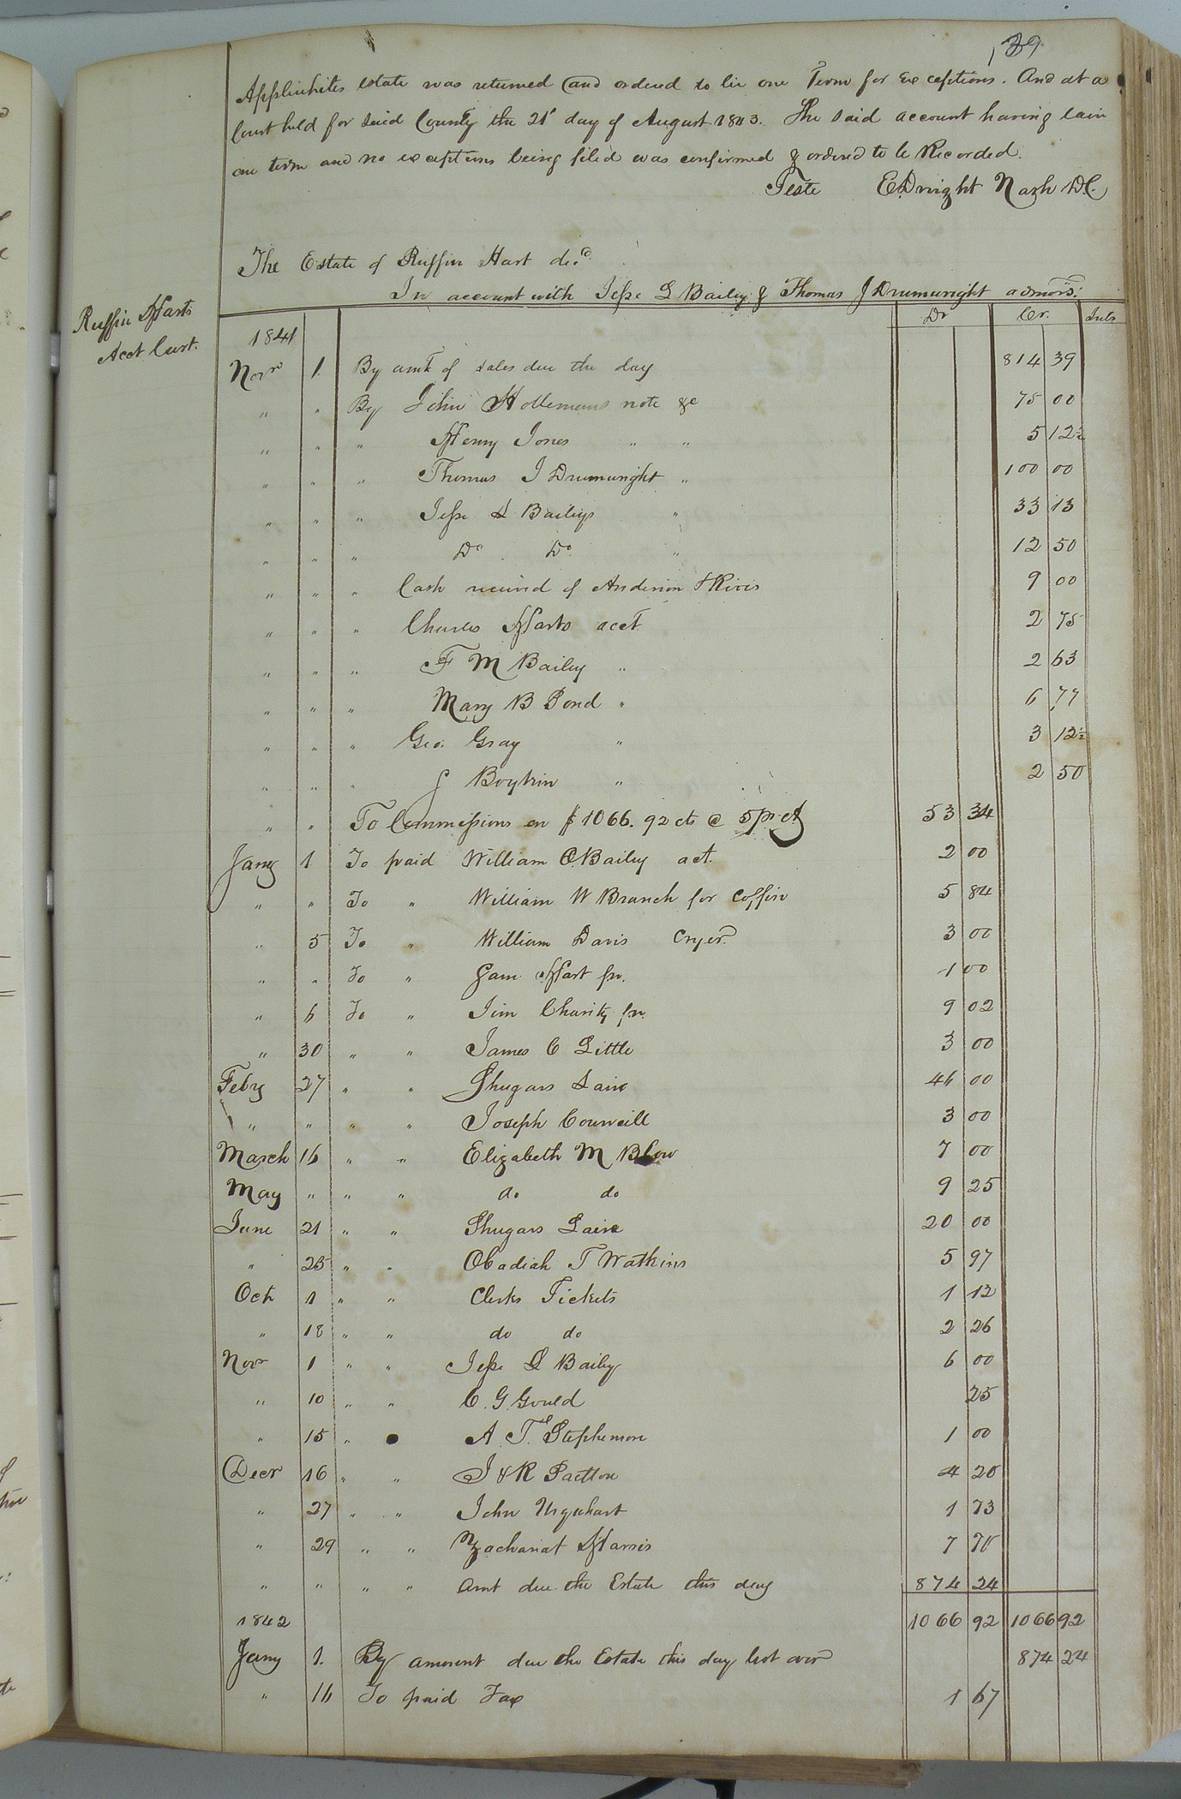 139
Applewhites estate was returned and ordered to lie one Term for exceptions. And at a
Court held for said County the 21st day of August 1843. The said account having lain
one term and no exceptions being filed was confirmed & ordered to be Recorded.
Teste E Dwight Nash D.C.
The Estate of Ruffin Hart decd.
In account with Jesse L Bailey & Thomas J Drumwright admors:
Ruffin Harts
Acct Curt.
Dr Cr. Ints
1841
Novr 1. By amt of sales due this day 814 39
" " By John Hollemans note &c 75 00
" " " Henry Jones " " 5 12½
" " " Thomas J Drumwright " 100 00
" " " Jesse L Baileys " 33 13
" " " Do. Do. " 12 50
" " " Cash received of Anderson 9 00
" " " Charles Harts acct 2 75
" " " F M Bailey " 2 63
" " " Mary B Pond " 6 77
" " " Geo. Gray " 3 12½
" " " J Boykin " 2 50
" " To Commissions on $1066.92 cts @ 5 pr ct 53 34
Jany 1 To paid William O. Bailey act. 2 00
" " To " William W Branch for Coffin 5 84
" 5 To " William Davis Cryer 3 00
" " To " Sam Hart 1 00
" 6 To " Jim Charity 9 02
" 30 " " James C Little 3 00
Feby 27 " " Shugars Lain 46 00
" " " " Joseph 3 00
March 16 " " Elizabeth M Blow 7 00
May " " " do do 9 25
June 21 " " Shugars Lain 20 00
" 25 " " Obadiah T Watkins 5 97
Oct 1 " " Clerks Tickets 1 12
" 18 " " do do 2 26
Novr 1 " " Jesse L Bailey 6 00
" 10 " " C. G. Gould 25
" 15 " A. T. Stephenson 1 00
Decr 16 " " J & R 4 20
" 27 " " John Urquhart 1 73
" 29 " " Harris 7 70
" " " " Amt due the Estate this day 874 24
1842 1066 92 1066 92
Jany 1. By amount due the Estate this day brot over 874 24
" 16 To paid Tax 1 67